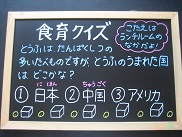 食育クイズ
こたえは
ランチルームの
なかだよ!
とうふは、たんぱくしつの
多いたべものですが、とうふのうまれた国
は どこかな?
にほん ちゅうごく
①日本 ②中国 ③アメリカ